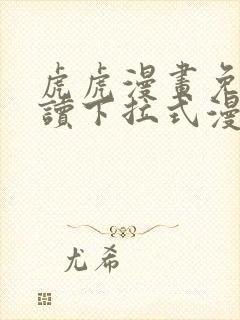 虎虎漫畫免
讀下拉式漫
尤希